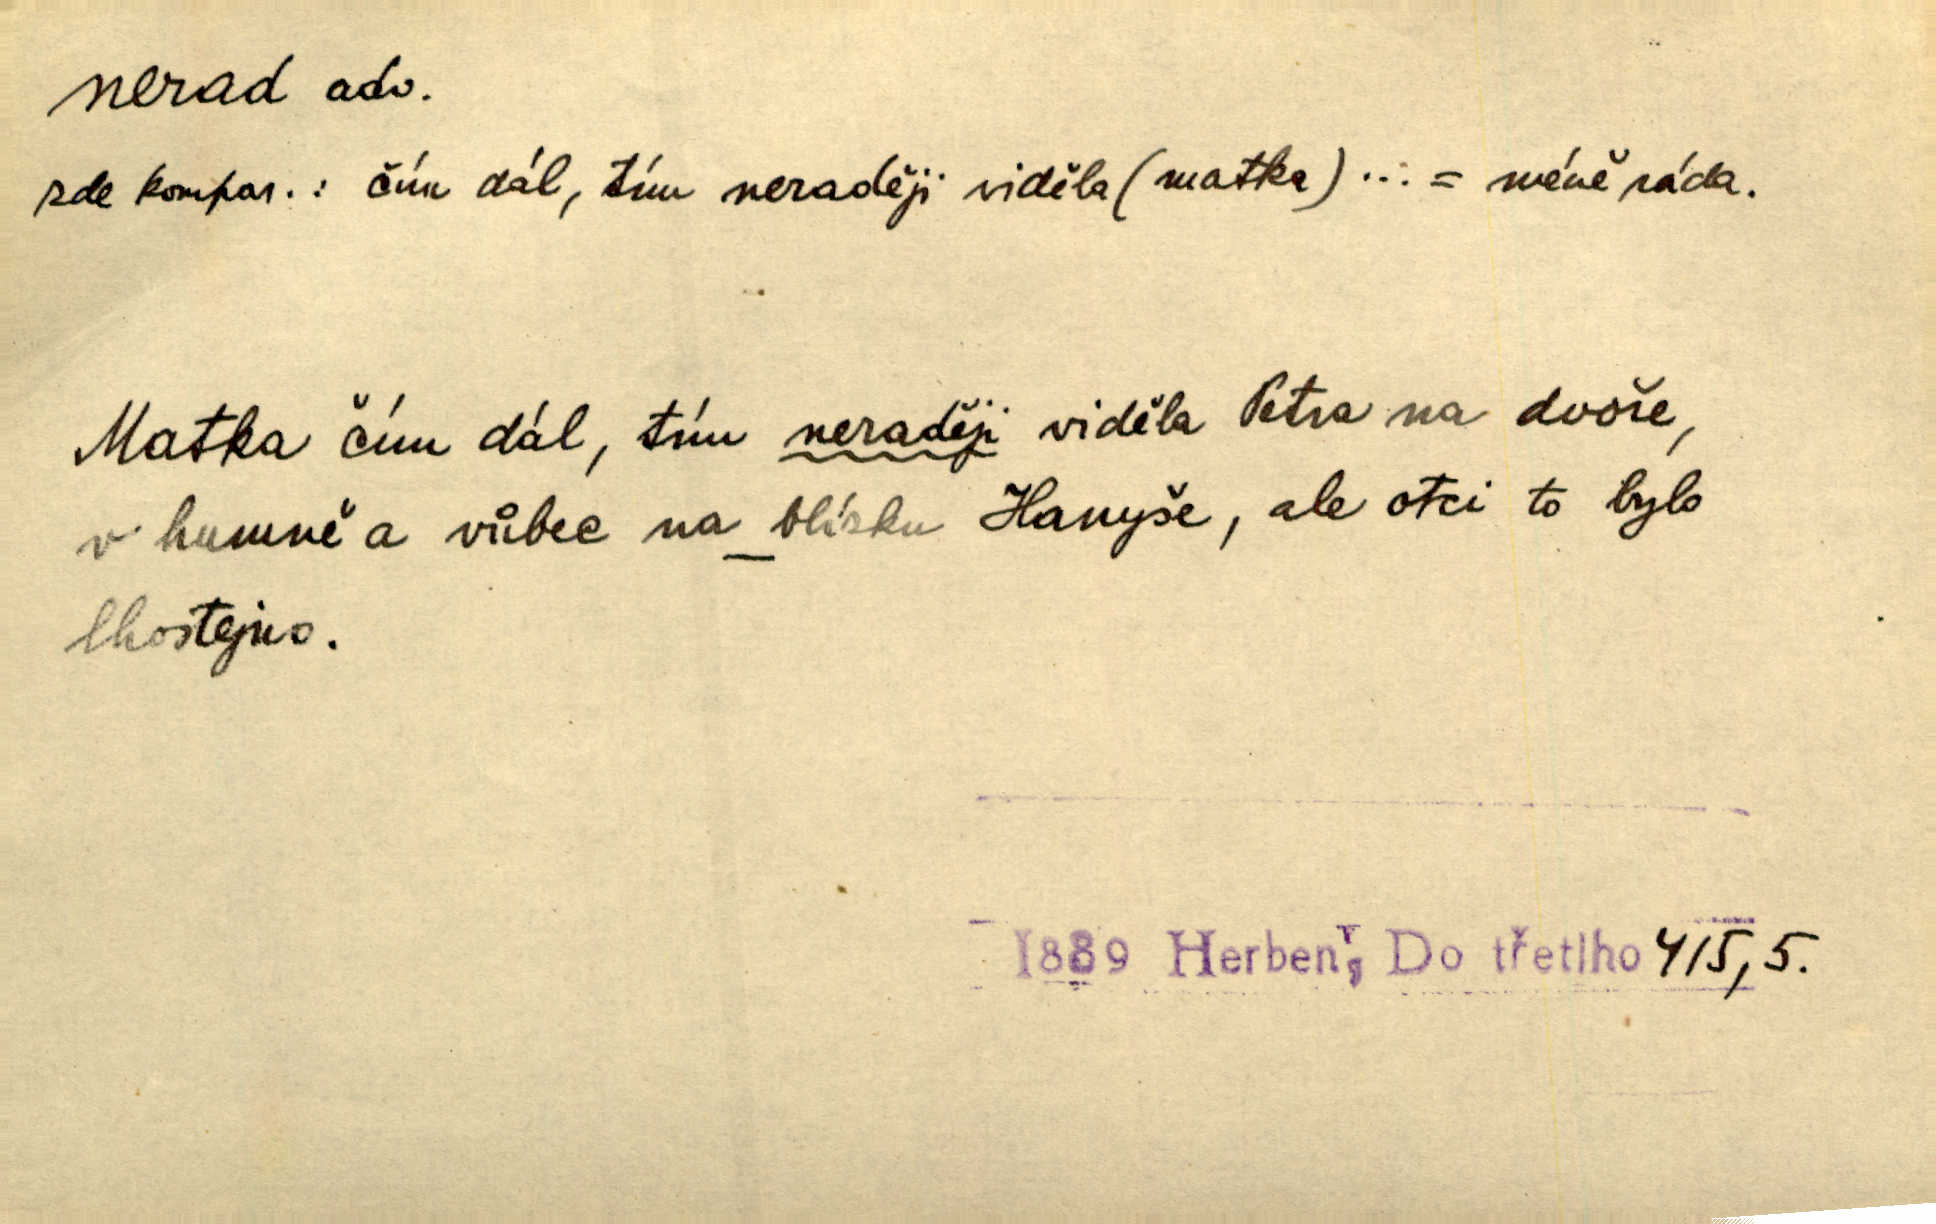 nerad adv.
zde kompar.: čím dál, tím neraději viděla (matka) ... = méně ráda.
Matka čím dál, tím neraději viděla Petra na dvoře,
v humně a vůbec na blízku Hanyše, ale otci to bylo
lhostejno.
1889 Herben, Do třetího 415, 5.